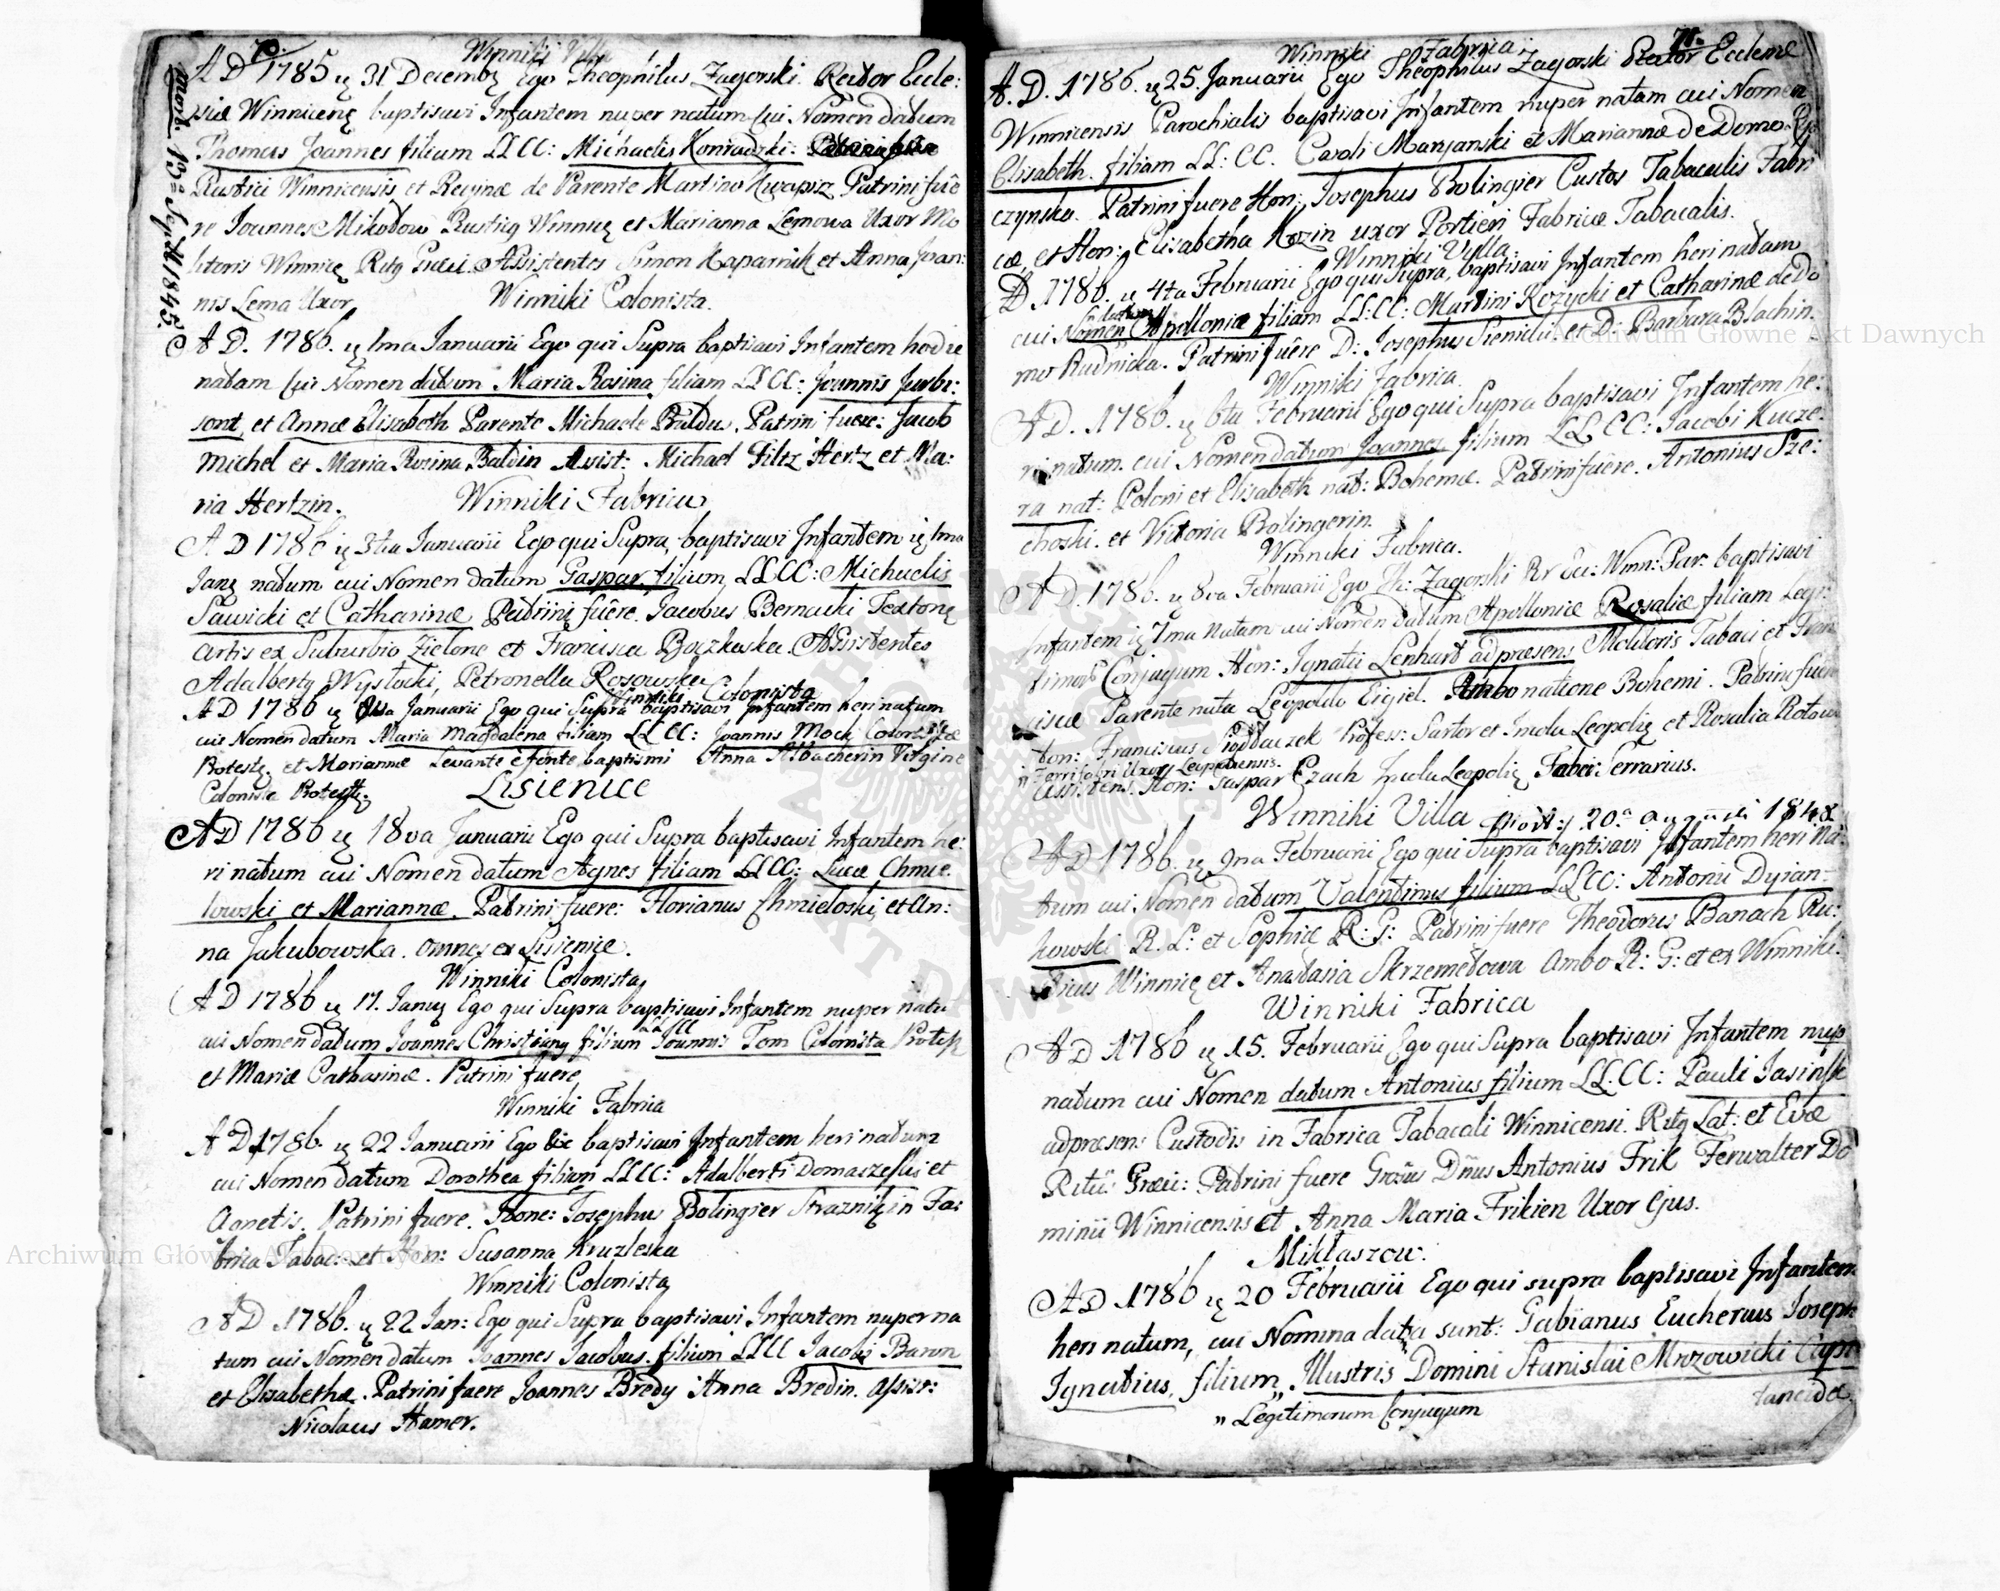 Winniki Villa
A D 1785 ę 31 Decembr Ego Theophilus Zagorski Rector Eccle:
siæ Winnicenę baptisavi Infantem nuper natum Cui Nomen datum
Thomas Joannes filium LLCC: Michaelis Konradzki.
Rustici Winnicensis et Reginæ de Parente Martino Kwapisz Patrini fuê
re Joannes Mikodow Rusticq Winnicę et Marianna Lemowa Uxor Mo
litoris Winnicę Ritq Græci. Assistentes Simon Kaparnik et Anna Joan:
nis Lema Uxor
mort. 13= Sept 1845.
Winniki Colonista.
A D. 1786. ę 1ma Januarii Ego qui Supra baptisavi Infantem hodie
natam Cui Nomen datum Maria Rosina filiam LLCC: Joannis Jurbi:
sont, et Annæ Elisabeth Parente Michaele Praldus. Patrini fuere: Jacob
Michel et Maria Rosina Baldin Assist: Michael Filtz Hertz et Ma:
ria Hertzin.
Winniki Fabrica
A D 1786 ę 3tia Januarii Ego qui Supra baptisavi Infantem ę 1ma
Janę natum cui Nomen datum Gaspar filium LLCC: Michaelis
Sawicki et Catharinæ Patrini fuêre Jacobus Bernacki Textorię
artis ex Suburbio Zielone et Francisca Boczkaska Assistentes
Adalbertq Wystocki, Petronella Rosowska
Winniki Colonista
A D 1786 ę 8va Januarii Ego qui Supra baptisavi Infantem heri natum
cui Nomen datum Maria Magdalena filiam LLCC: Joannis Moch Colonistæ
Protestę. et Mariannæ Levante è fonte baptismi Anna Albacherin Virgine
Colonista Protestę.
Lisienice
A D 1786 ę 18va Januarii Ego qui Supra baptisavi Infantem he:
ri natum cui Nomen datum Agnes filiam LLCC: Lucæ Chmie
lowski et Mariannæ. Patrini fuere: Florianus Chmieloski et An:
na Jakubowska. omnes ex Lisienice.
Winniki Colonista
A D 1786 ę 17. Januę Ego qui Supra baptisavi Infantem nuper natū
cui Nomen datum Joannes Christianq filium LLCC Joannis Tom Colonista Protest
et Mariæ Catharinæ. Patrini fuere
Winniki Fabrica
A D 1786. ę 22 Januarii Ego baptisavi Infantem heri natum
cui Nomen datum Dorothea filiam LLCC: Adalberti Domaszeski et
Agnetis. Patrini fuere. Hone: Josephus Bolingier Straznik in Fa:
brica Tabac: et Hon: Susanna Kruzleska
Winniki Colonista
A D 1786. ę 22 Jan: Ego qui Supra baptisavi Infantem nuper na
tum cui Nomen datum Joannes Jacobus filium LLCC Jacobi Baron
et Elisabethæ. Patrini fuere Joannes Bredy Anna Bredin. Assist:
Nicolaus Hamer.
78.
Winniki Fabrica
A. D. 1786. ę 25. Januarii Ego Theophilus Zagorski Rector Ecclesiæ
Winnicensis Parochialis baptisavi Infantem nuper natam cui Nomen
Elisabeth. filiam LL: CC. Caroli Marjanski et Mariannæ de Domo
czynska. Patrini fuere Hon: Josephus Bolingier Custos Tabacalis Fabri
cæ et Hon: Elisabetha Kozin uxor Portieri Fabricæ Tabacalis.
Winniki Vylla
A D 1786. ę 4ta Februarii Ego qui Supra, baptisavi Infantem heri natam
cui Nomen datum Apolloniæ filiam LL:CC: Martini Rożycki et Catharinæ de Do
mo Rudnicka. Patrini fuêre D: Josephus Sienicki et D: Barbara Blachin.
Winniki Fabrica.
A D. 1786. ę 6ta Februarii Ego qui Supra baptisavi Infantem he:
ri natum cui Nomen datum Joannes filium LLCC: Jacobi Kucze:
ra nat: Poloni et Elisabeth nat: Bohemæ. Patrini fuêre. Antonius Sze:
choski. et Victoria Bolingerin.
Winniki Fabrica.
A D. 1786. ę 8va Februarii Ego Th: Zagorski Rr Ec: Winn: Par: baptisavi
Infantem ę 7ma Natam cui Nomen datum Apolloniæ Rosaliæ filiam Legi:
timor Conjugum Hon: Ignatii Lenhart ad præsens Molitoris Tabaci et Fran
ciscæ Parente nata Leopoldo Eigiel. Ambo natione Bohemi. Patrini fuere
Hon: Franciscus Profess: Sartor et Incola Leopolię et Rosalia
Ferri fabri Uxor Leopoliensis.
Assistens. Hon: Gaspar Czach Incola Leopolię Faber Ferrarius.
Winniki Villa Mort: 20a Augusti 1848
A D 1786. ę 9na Februarii Ego qui Supra baptisavi Infantem heri Na:
tum cui Nomen datum Valentinus filium LLCC: Antonii Dyian:
kowski R. L: et Sophiæ R: G: Patrini fuere Theodorus Banach Ru:
sticus Winnicę et Anastasia Skrzemetowa Ambo R: G: et ex Winniki.
Winniki Fabrica
A D 1786 ę 15. Februarii Ego qui Supra baptisavi Infantem nup
natum cui Nomen datum Antonius filium LL:CC: Pauli Jasinsk
ad præsens Custodis in Fabrica Tabacali Winnicensi. Ritq Lat: et Evæ
Ritûs Græci: Patrini fuere Grosus Dnus Antonius Frik Ferwalter Do
minii Winnicensis et Anna Maria Frikien Uxor ejus.
Miklaszow.
A D 1786 ę 20 Februarii Ego qui supra baptisavi Infantem
heri natum, cui Nomina data sunt: Fabianus Eucherius Joseph
Ignatius, filium Illustris Domini Stanislai Mrzowicki Cape
taneidæ.
" Legitimorum Conjugum
Archiwum Główne Akt Dawnych
Archiwum Główne Akt Dawnych